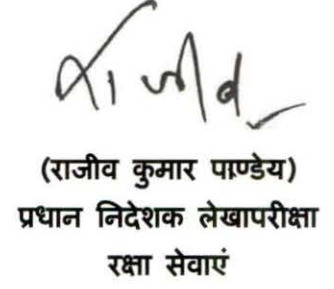 राजीव
(राजीव कुमार पाण्डेय)
प्रधान निदेशक लेखापरीक्षा
रक्षा सेवाएं